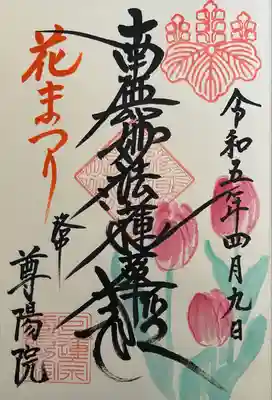 令和五年四月九日
南無妙法蓮華経
花まつり
尊陽院